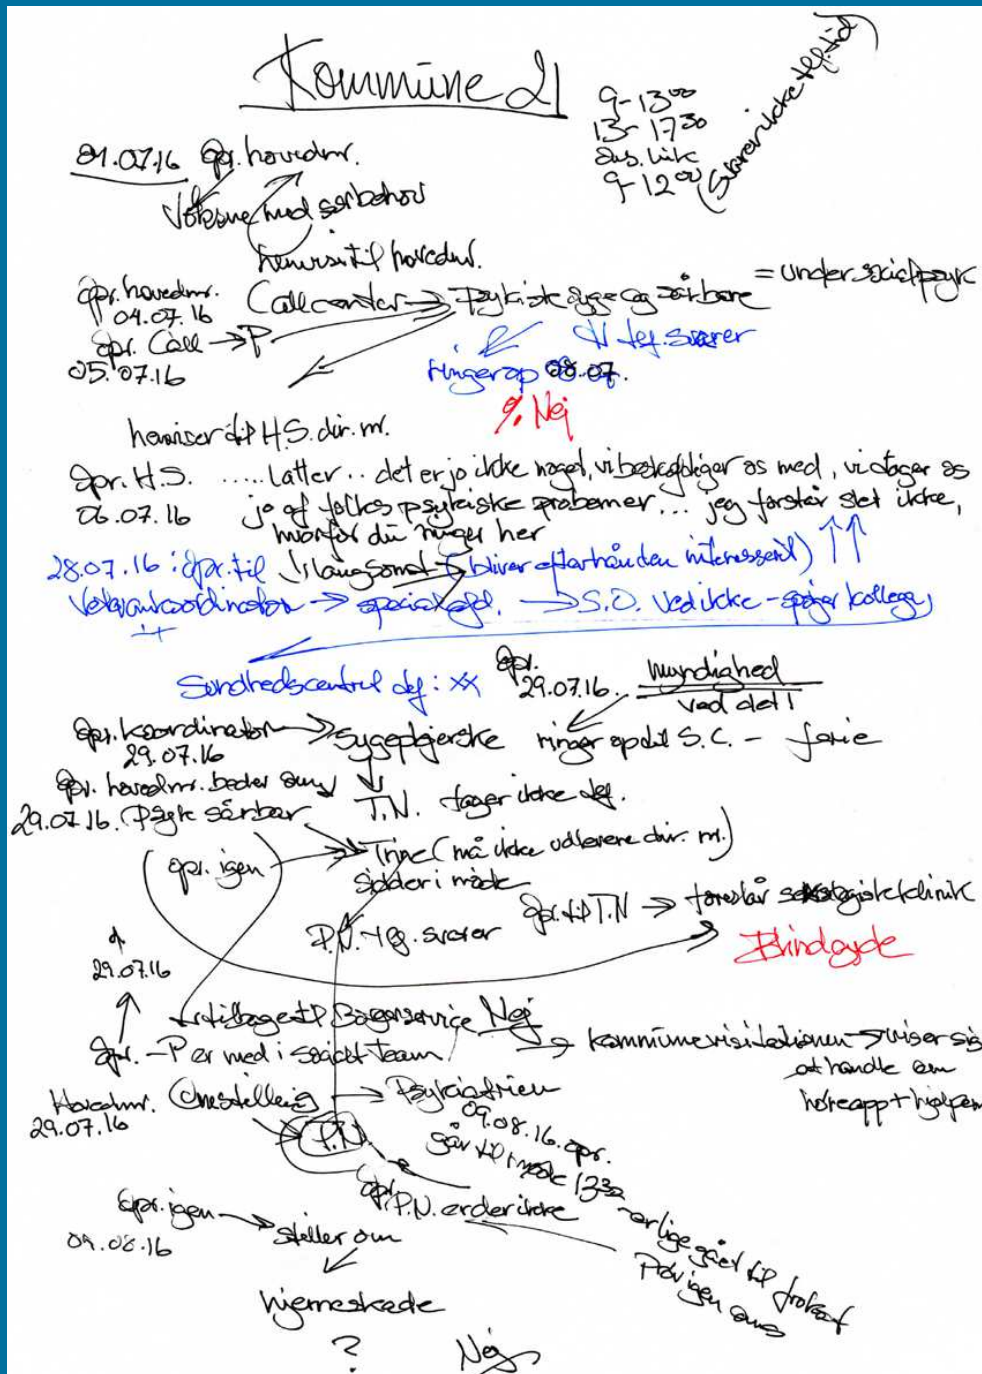 Kommune 21
9-13⁰⁰
13-17³⁰
ons. luk
9-12⁰⁰
(svarer ikke tlf. tid)
01.07.16 Opr. hovednr.
Voksne med særbehov
henviser til hovednr.
Opr. hovednr.
04.07.16
Callcenter → Psykisk syge og sårbare = under socialpsyk
Opr. Call → P
05.07.16
tlf. svarer
ringer op 08.07.
% Nej
henviser til H.S. dir. nr.
Opr. H.S. ..... Latter .. det er jo ikke noget, vi beskæftiger os med, vi tager os
06.07.16 jo af folks psykiske probemer... jeg forstår slet ikke,
hvorfor du ringer her
28.07.16 : Opr. til langsomt (bliver efterhånden interesseret)
Veterankoordinator → special afd. → S.O. Ved ikke - spørger kollega
Sundhedscentret tlf: xx
Opr.
29.07.16.
myndighed
ved det!
Opr. koordinator → Sygeplejerske ringer op til S.C. - ferie
29.07.16
Opr. hovednr. beder om
29.07.16. Psyk sårbar
T.N. tager ikke tlf.
(opr. igen → Trine (må ikke udlevere dir. nr.)
sidder i møde
Opr. til T.N → foreslår sexologisk klinik
P.N. tlf. svarer
Blindgyde
29.07.16
tilbage til Borgerservice Nej
Opr. - P er med i socialt Team
→ kommunevisitationen → viser sig
at handle om
høreapp + hjælpem
Hovednr. Omstilling → Psykiatrien
29.07.16
P.N.
09.08.16. opr.
går til møde 12³⁰
- er lige gået til frokost
Prøv igen
opr. P.N. er der ikke
Opr. igen → stiller om
09.08.16
hjerneskade
?
Nej